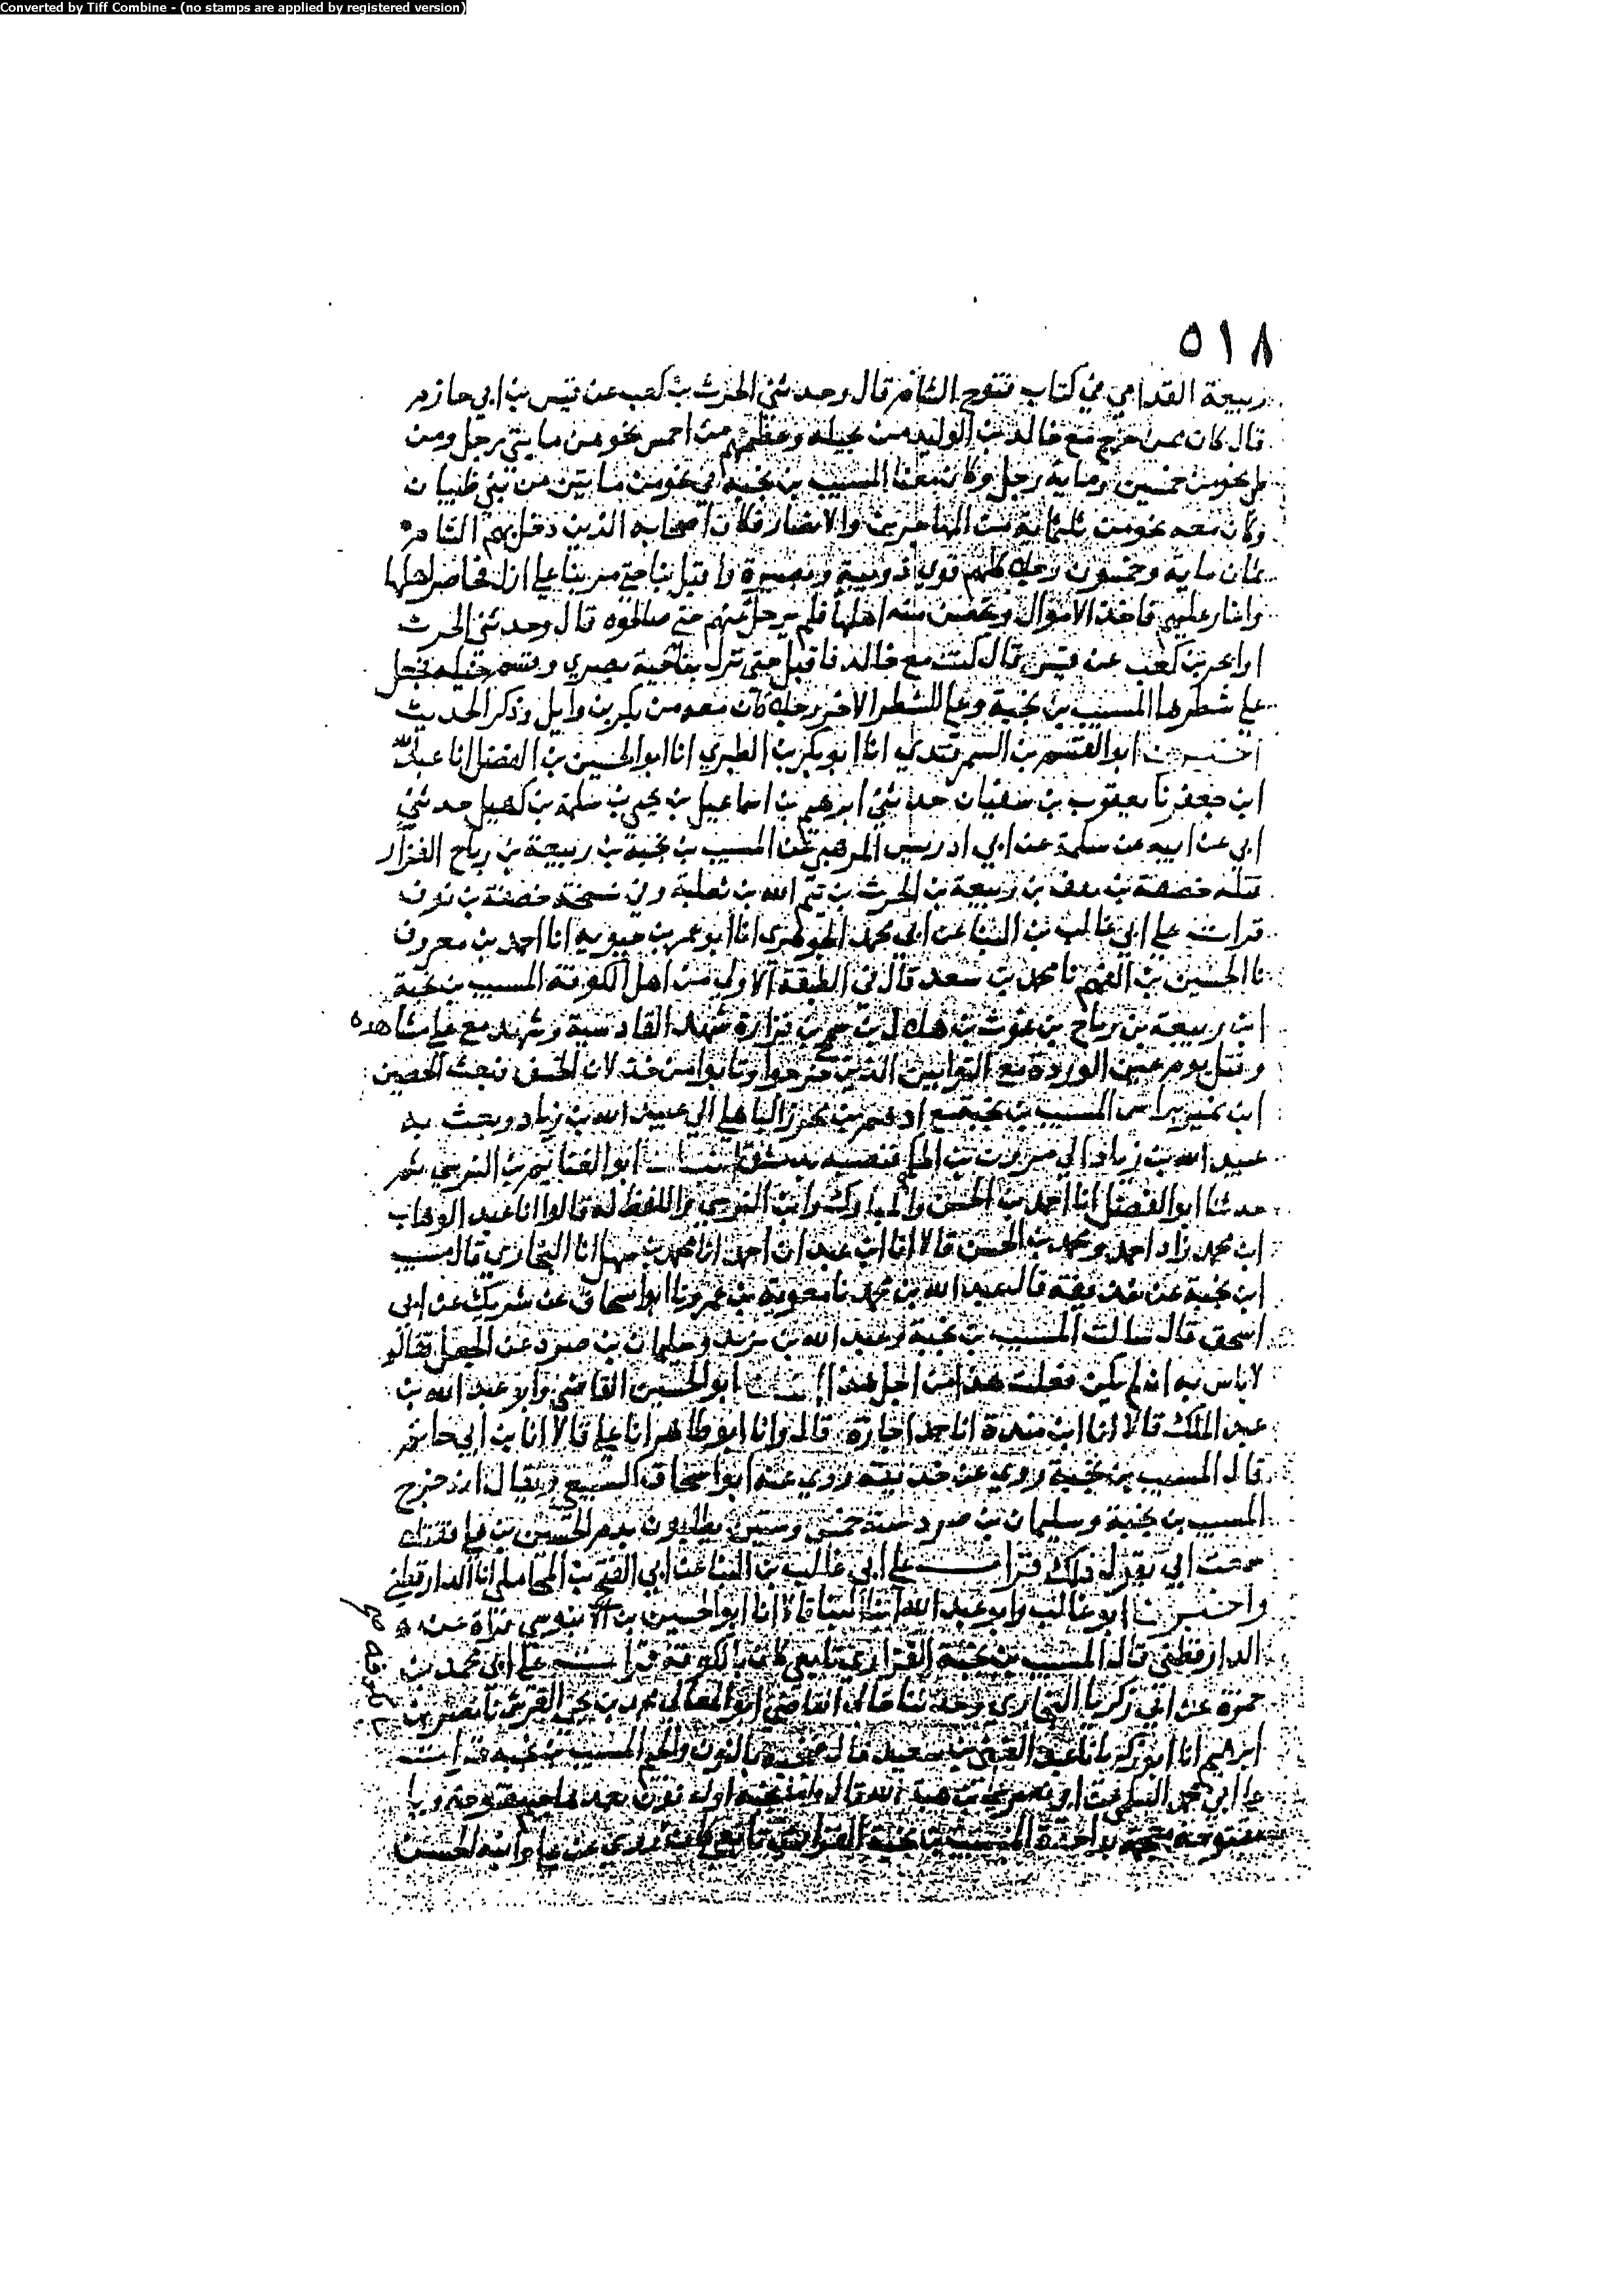 Converted by Tiff Combine - (no stamps are applied by registered version)
٥١٨
ربيعة القدامي في كتاب فتوح الشام قال وحدثني الحرث بن كعب عن قيس بن ابي حازم
قال كان ممن خرج مع خالد بن الوليد من بجيله وعظمهم من احمس نحو من مايتي رجل ومن
طي نحو من خمسين ومايه رجل وكان معنا المسيب بن نجبة في نحو من مايتين من بني ظبيان
وكان معه نحو من ثلثماية من المهاجرين والانصار فكان اصحابه الذين دخل بهم الشام
ثمان ماية وخمسون رجلا كلهم ذوي ونية وبصيرة واقبل بنا حتى مر بنا على ارك فحاصر اهلها
واغار عليهم فاخذ الاموال وتحصن منه اهلها فلم يرحل عنهم حتى صالحوه قال وحدثني الحرث
بن كعب عن قيس قال كنت مع خالد فاقبل حتى نزل بناحية بصري وقسم خيله فجعل
على شطرها المسيب بن نجبة وعلى الشطر الاخر رجلا كان معه من بكر بن وايل وذكر الحديث
اخبرنا ابو القسم بن السمرقندي انا ابو بكر بن الطبري انا ابو الحسين بن الفضل انا عبد الله
ابن جعفر نا يعقوب بن سفيان حدثني ابرهيم بن اسماعيل بن يحيى بن سلمة بن كهيل حدثني
ابي عن ابيه عن سلمة عن ابي ادريس المرهبي عن المسيب بن نجبة بن ربيعة بن رياح الفزار
قتله خصفة بن ثقف بن ربيعة بن الحرث بن تيم الله بن ثعلبة وفي نسخة خصفة بن
قرات على ابي غالب بن البنا عن ابي محمد الجوهري انا ابو عمر بن حيويه انا احمد بن معروف
نا الحسين بن الفهم نا محمد بن سعد قال في الطبقة الاولى من اهل الكوفة المسيب بن نجبة
ابن ربيعة بن رياح بن عوف بن هلال بن شمخ بن فزارة شهد القادسية وشهد مع علي مشاهده
وقتل يوم عين الوردة مع التوابين الذين خرجوا وتابوا من خذلان الحسين فبعث الحصين
ابن نمير براس المسيب بن نجبة مع ادهم بن محرز الباهلي الى عبيد الله بن زياد وبعث به
عبيد الله بن زياد الى مروان بن الحكم فنصبه بدمشق انبانا ابو الغنايم بن النرسي ثم
حدثنا ابو الفضل انا احمد بن الحسن والمبارك وابن النرسي واللفظ له قالوا انا عبد الوهاب
ابن محمد زاد احمد ومحمد بن الحسن قالا انا ابن عبدان احمد انا محمد بن سهل انا البخاري قال مسيب
ابن نجبة عن حذيفة قال عبد الله بن محمد نا معوية بن عمرو نا ابو اسحاق عن شريك عن ابي
اسحق قال سالت المسيب بن نجبة وعبد الله بن يزيد وسليمان بن صرد عن الجعل فقالو
لا باس به ان لم يكن فعلت هذا من اجل هذا انبانا ابو الحسين القاضي وابو عبد الله بن
عبد الملك قالا انا ابن مندة انا حمد اجازة قال وانا ابو طاهر انا علي قالا انا بن ابي حاتم
قال المسيب بن نجبة روى عن حذيفة روي عنه ابو اسحاق السبيعي ويقال انه خرج
المسيب بن نجبة وسليمان بن صرد سنة خمس وستين يطلبون بدم الحسين بن علي فقتلا
سمعت ابي يقول ذلك قرات على ابي غالب بن البنا عن ابي الفتح بن المحاملي انا الدارقطني
واخبرنا ابو غالب وابو عبد الله ابنا البنا قالا انا ابو الحسين بن الابنوسي قراة عن
الدارقطني قال المسيب بن نجبة الفزاري تابعي كان بالكوفة قرات على ابي محمد بن
حمزة عن ابي زكريا البخاري وحدثنا خالي القاضي ابو المعالي محمد بن يحيى القرشي نا نصر بن
ابرهيم انا ابو زكريا نا عبد الغني بن سعيد قال نجبة بالنون والجيم المسيب بن نجبة قرات
على ابي محمد السلمي عن ابي نصر بن هبة الله قال واما نجبة اوله نون بعدها جيم مفتوحة وبا
مفتوحة معجمة بواحدة المسيب بن نجبة الفزاري تابعي كان يروي عن علي وابنه الحسن